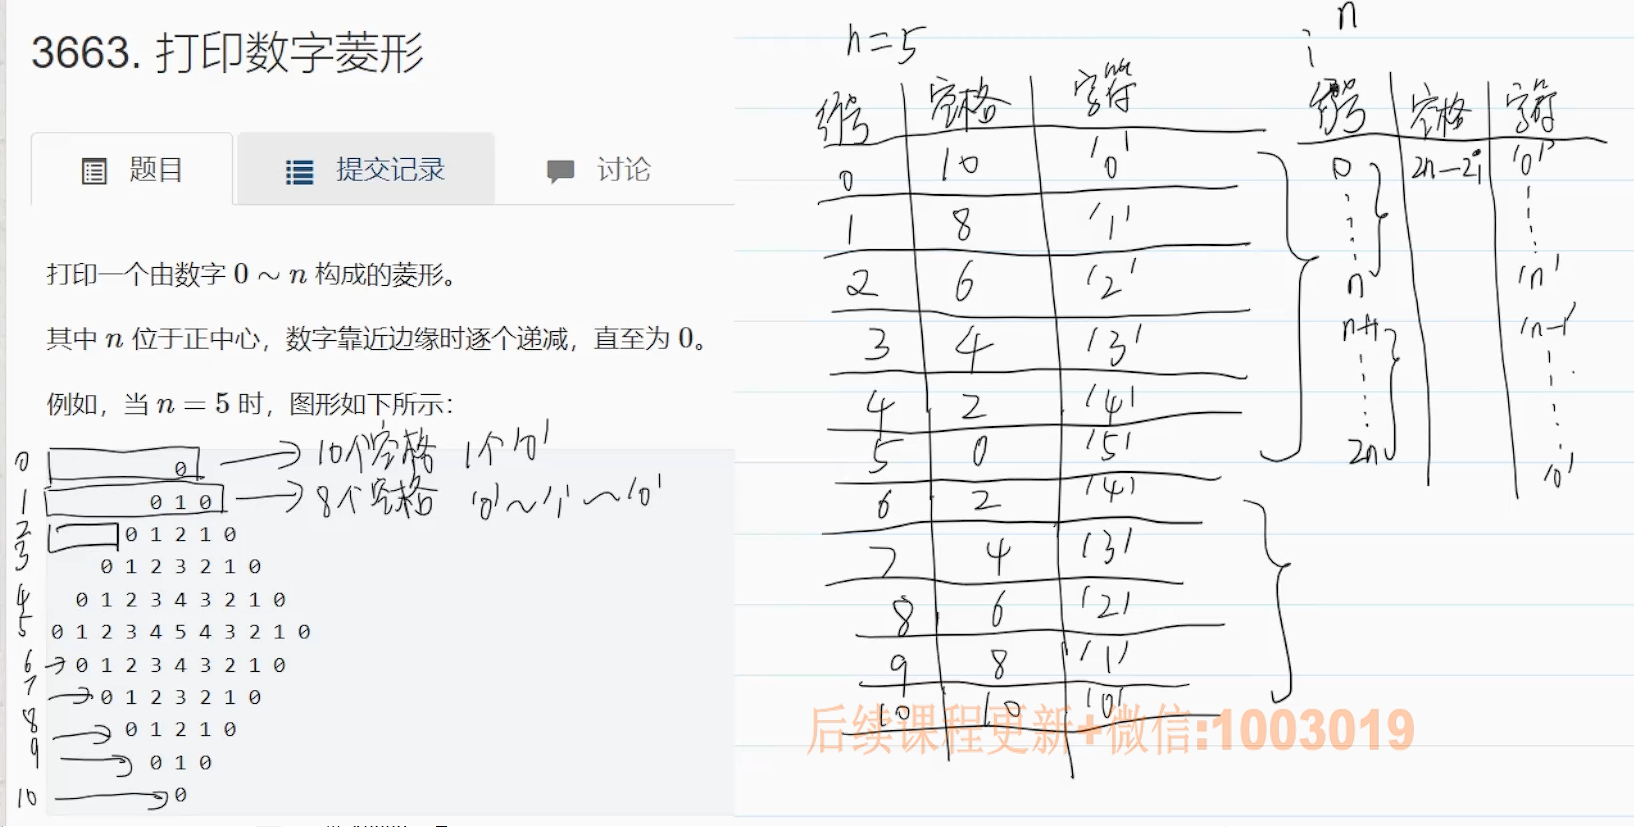 3663. 打印数字菱形
题目
提交记录
讨论
打印一个由数字 0 ∼ n 构成的菱形。
其中 n 位于正中心，数字靠近边缘时逐个递减，直至为 0。
例如，当 n = 5 时，图形如下所示：
0 0 → 10个空格 1个'0'
1 0 1 0 → 8个空格 '0'~'1'~'0'
2 0 1 2 1 0
3 0 1 2 3 2 1 0
4 0 1 2 3 4 3 2 1 0
5 0 1 2 3 4 5 4 3 2 1 0
6 → 0 1 2 3 4 3 2 1 0
7 → 0 1 2 3 2 1 0
8 → 0 1 2 1 0
9 → 0 1 0
10 → 0
n=5
编号 空格 字符
0 10 '0'
1 8 '1'
2 6 '2'
3 4 '3'
4 2 '4'
5 0 '5'
6 2 '4'
7 4 '3'
8 6 '2'
9 8 '1'
10 10 '0'
n
i
编号 空格 字符
0 2n-2i '0'
n 'n'
n+1 'n-1'
2n '0'
后续课程更新+微信:1003019